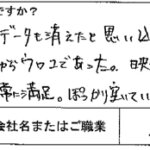 ですか?
データも消えたと思い込
からウロコであった。映
常に満足。ぽっかり空いてい
会社名またはご職業